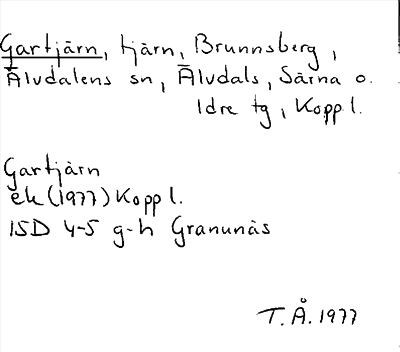 Gartjärn, tjärn, Brunnsberg,
Älvdalens sn, Älvdals, Särna o.
Idre tg, Kopp l.
Gartjärn
ek (1977) Kopp l.
15D 4-5 g-h Granunäs
T.Å. 1977